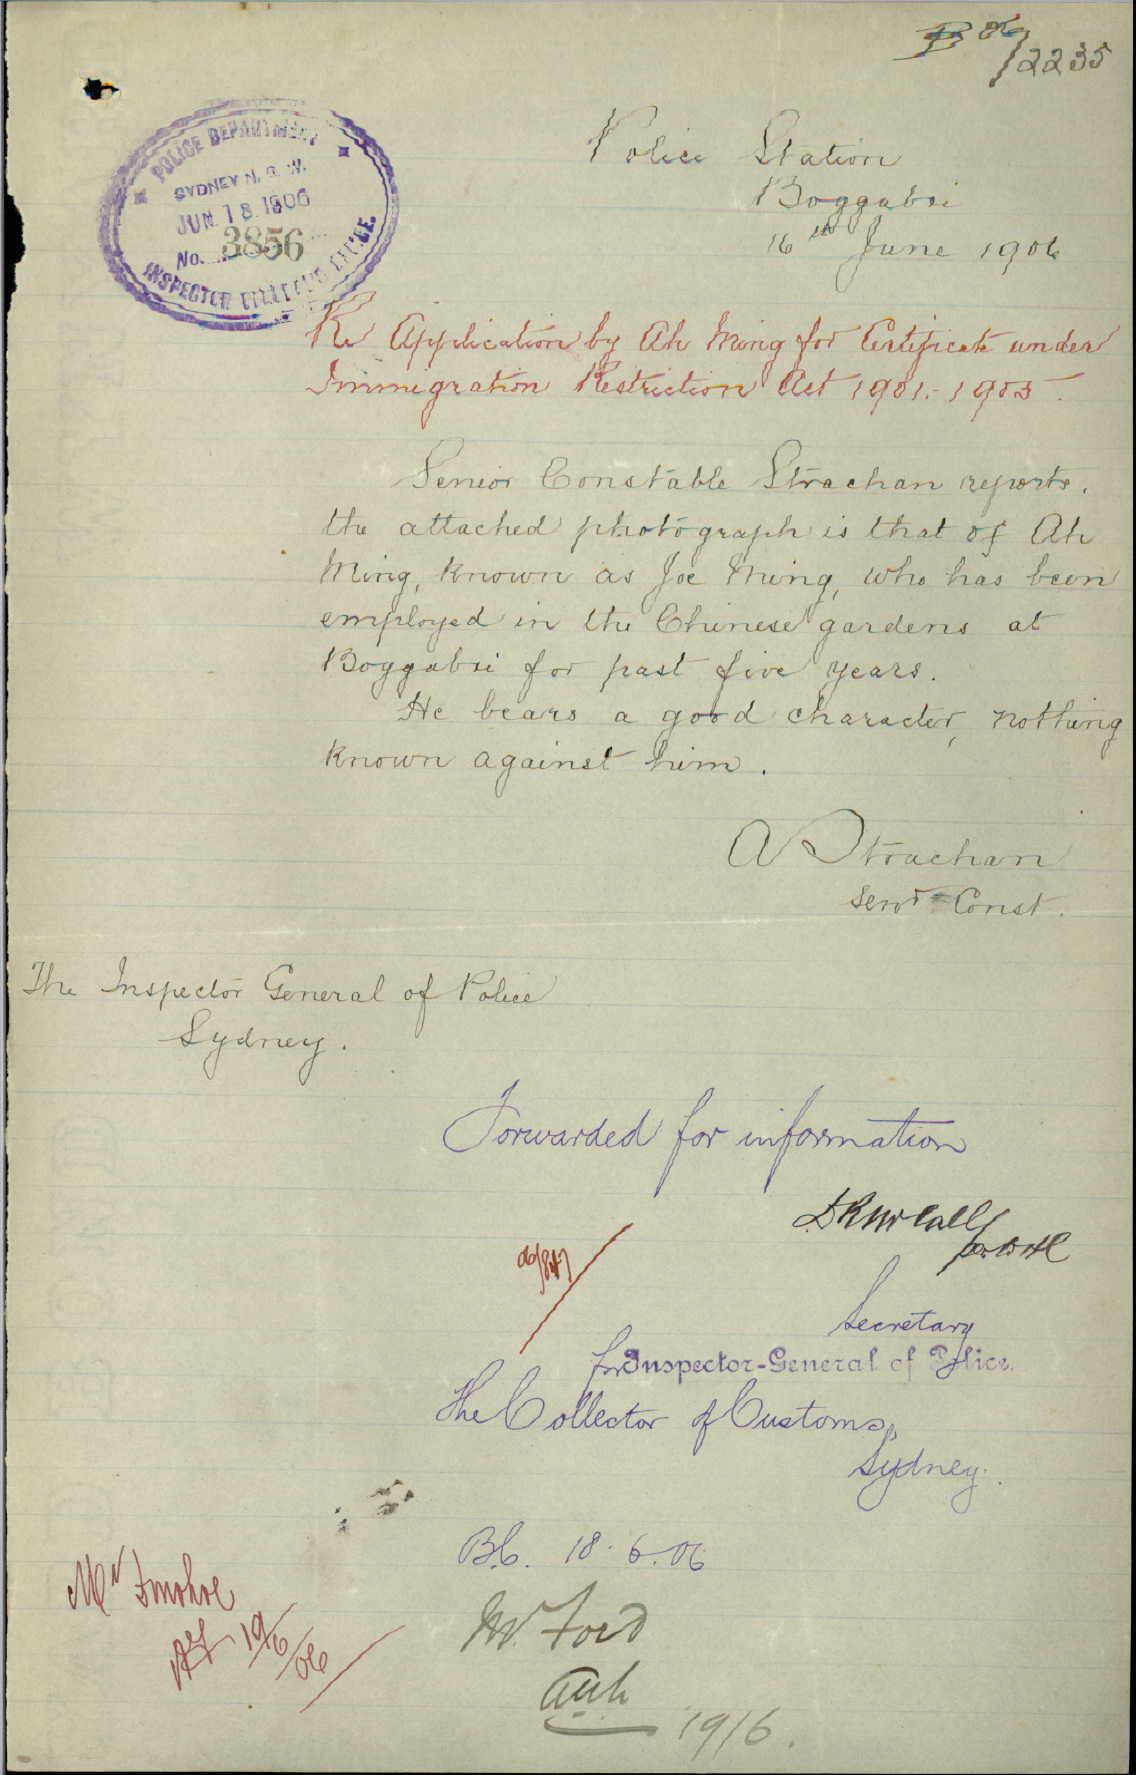 B 06/2235
POLICE DEPARTMENT
SYDNEY N.S.W.
JUN 18 1906
No. 3856
INSPECTOR GENERAL'S OFFICE.
Police Station
Boggabri
16th June 1906
Re Application by Ah Ming for Certificate under
Immigration Restriction Act 1901-1905.
Senior Constable Strachan reports.
the attached photograph is that of Ah
Ming, known as Joe Ming, who has been
employed in the Chinese gardens at
Boggabri for past five years.
He bears a good character, nothing
known against him.
A Strachan
Senr Const.
The Inspector General of Police
Sydney.
Forwarded for information
06/847
Secretary
for Inspector-General of Police.
The Collector of Customs,
Sydney.
B.C. 18.6.06
Mr Donohoe
19/6/06
Mr. Ford
19/6.